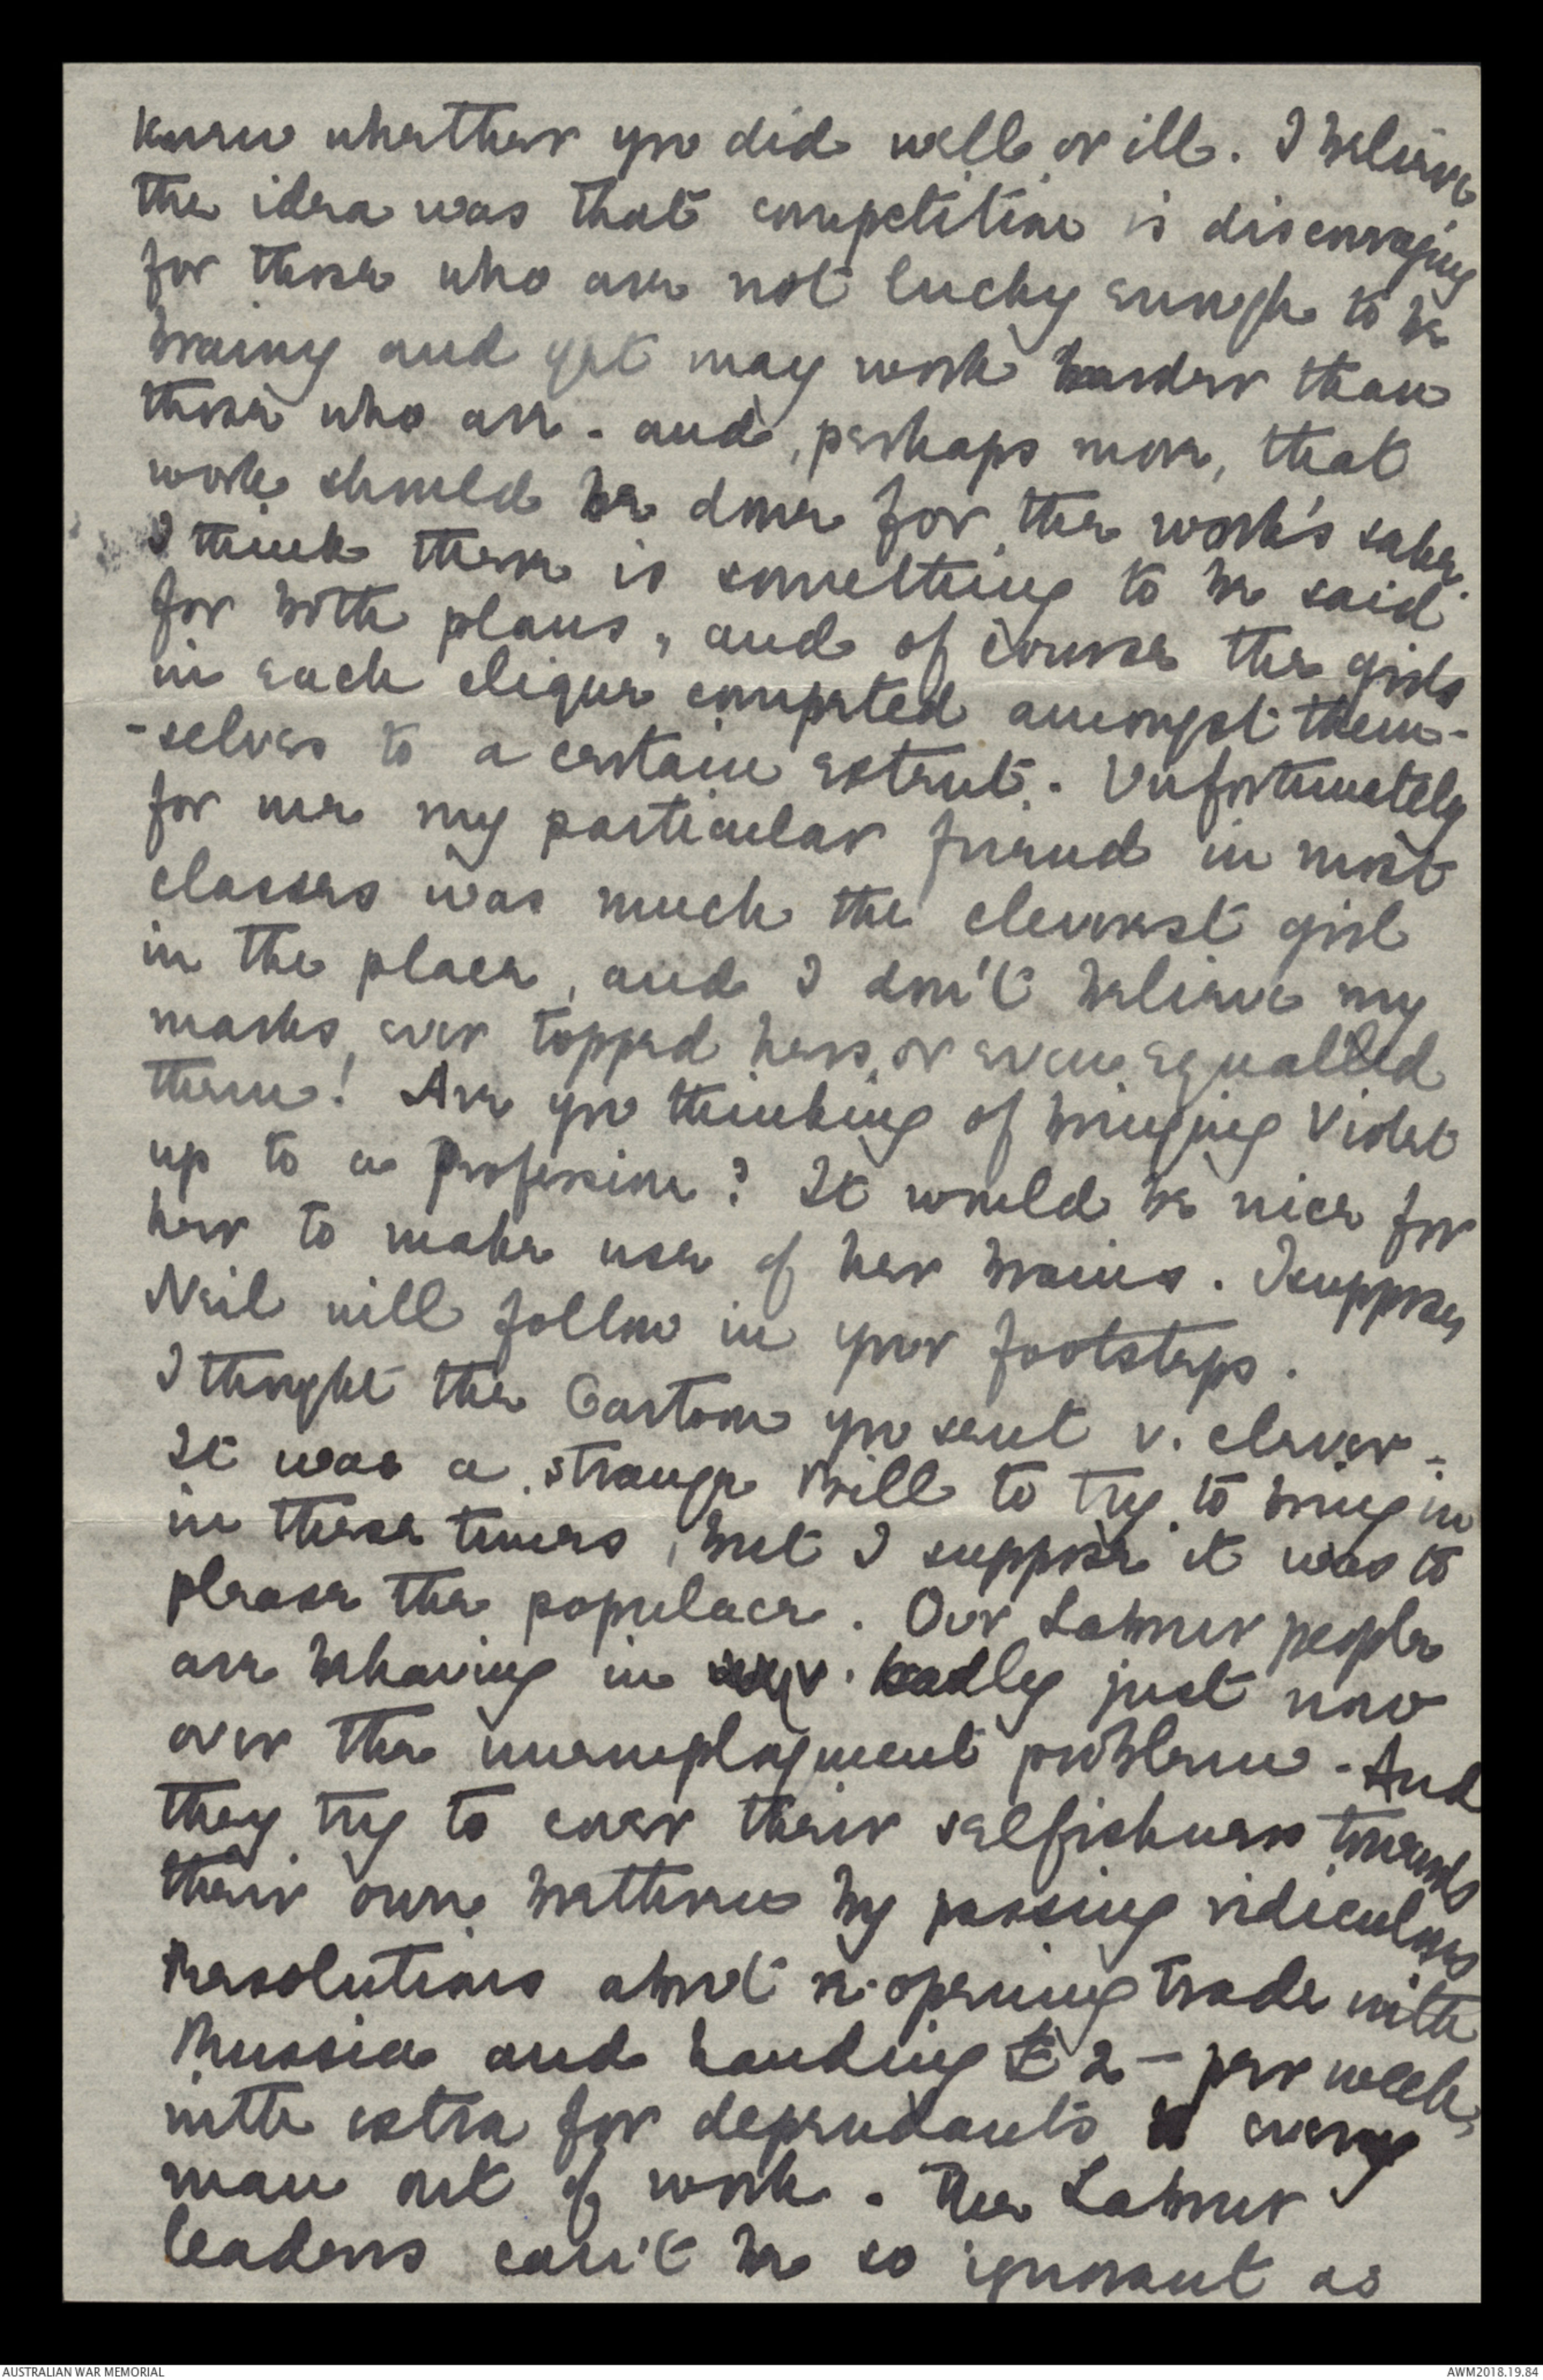 knew whether you did well or ill. I believe
the idea was that competition is discouraging
for those who are not lucky enough to be
brainy and yet may work harder than
those who are - and, perhaps more, that
work should be done for the work's sake.
I think there is something to be said
for both plans, and of course the girls
in each clique competed amongst them-
-selves to a certain extent. Unfortunately
for me my particular friend in most
classes was much the cleverest girl
in the place, and I don't believe my
marks ever topped hers, or even equalled
them! Are you thinking of bringing Violet
up to a profession? It would be nice for
her to make use of her brains. I suppose
Neil will follow in your footsteps.
I thought the Cartoon you sent v. clever -
It was a strange Bill to try to bring in
in these times, but I suppose it was to
please the populace. Our Labour people
are behaving in v. badly just now
over the unemployment problem - And
they try to cover their selfishness towards
their own brethren by passing ridiculous
Resolutions about re-opening trade with
Russia and handing £2 - per week,
with extra for dependants to every
man out of work. The Labour
leaders can't be so ignorant as
AUSTRALIAN WAR MEMORIAL
AWM2018.19.84